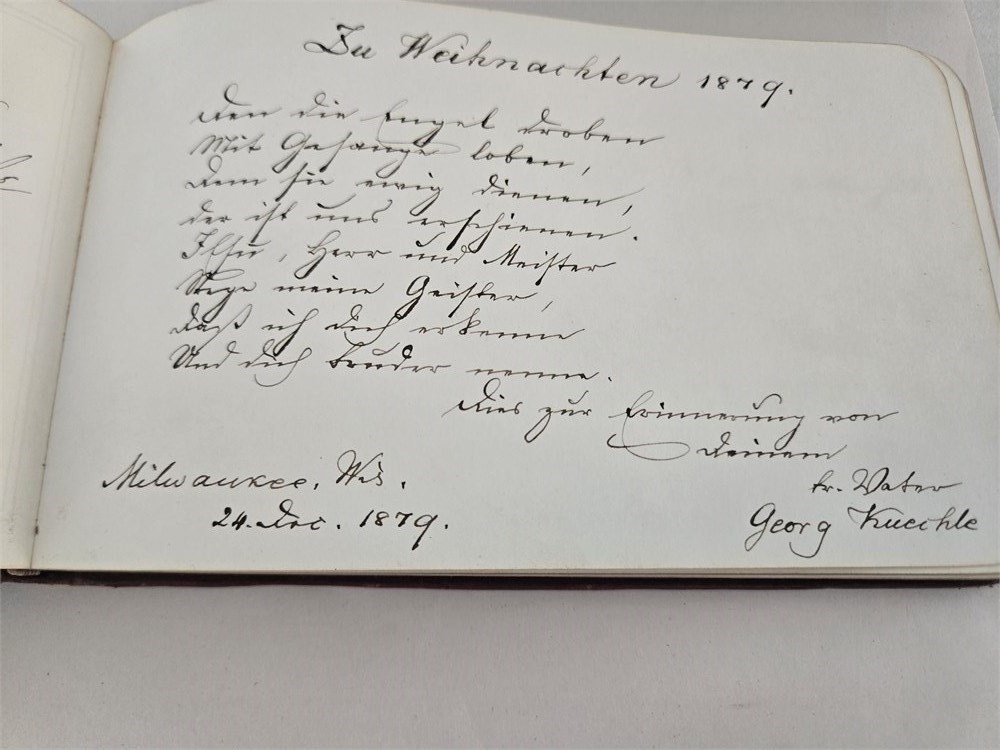 Zu Weihnachten 1879.
Den die Engel droben
Mit Gesange loben,
Dem sie ewig dienen,
der ist uns erschienen.
Jesu, Herr und Meister
Rege meine Geister,
Daß ich dich erkenne
Und dich Bruder nenne.
Dies zur Erinnerung von
Deinem
tr. Vater
Milwaukee, Wis.
Georg Kuechle
24. Dec. 1879.